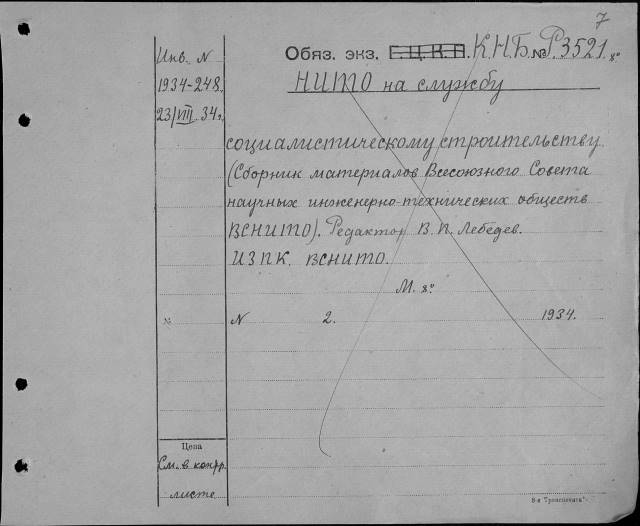 7
Инв. N
1934-248.
23/VIII 34г.
Обяз. экз. Г.Ц.К.П. К.Н.Б. № Р.3521. 8°
НИТО на службу
социалистическому строительству
(Сборник материалов Всесоюзного Совета
научных инженерно-технических обществ
ВСНИТО). Редактор В. П. Лебедев.
ИЗПК. ВСНИТО.
М. 8°
№ N 2. 1934.
Цена
См. в контр.
листе